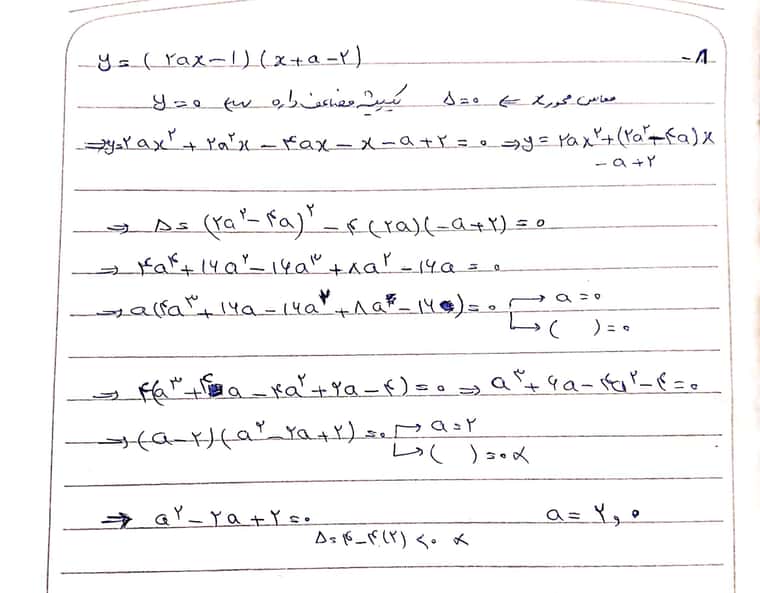 ۸-
y = (۲ax-۱)(x+a-۲)
مماس محور x ← Δ=۰ یک ریشه مضاعف دارد y=۰
⇒y=۲ax^۲ + ۲a^۲x - ۴ax - x - a + ۲ = ۰ ⇒ y = ۲ax^۲+(۲a^۲-۴a)x
-a+۲
⇒ Δ = (۲a^۲-۴a)^۲ - ۴(۲a)(-a+۲) = ۰
⇒ ۴a^۴+۱۶a^۲-۱۶a^۳+۸a^۲-۱۶a = ۰
⇒ a(۴a^۳+۱۶a-۱۶a^۲+۸a-۱۶) = ۰ → a=۰
↳ ( ) = ۰
⇒ ۴(a^۳+۴a-۴a^۲+۲a-۴) = ۰ ⇒ a^۳+۶a-۴a^۲-۴=۰
⇒(a-۲)(a^۲-۲a+۲)=۰ → a=۲
↳ ( ) = ۰ ×
⇒ a^۲-۲a+۲=۰ a=۲,۰
Δ=۴-۴(۲) <۰ ×